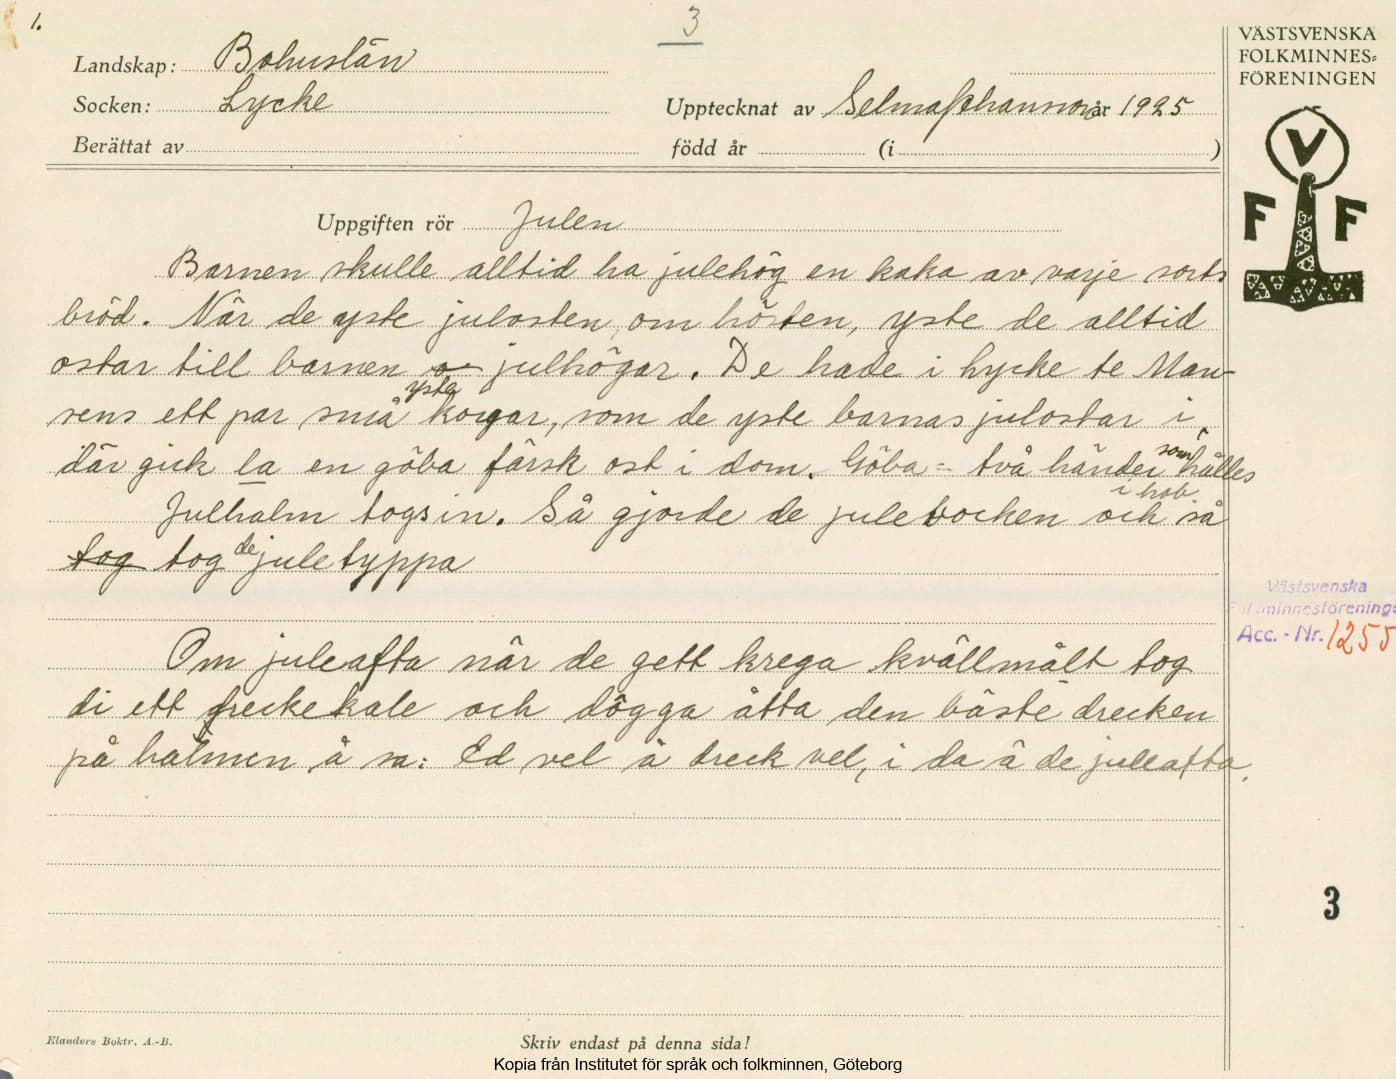 1.
3
Landskap: Bohuslän
Socken: Lycke
Upptecknat av Selma Johansson år 1925
Berättat av
född år (i )
VÄSTSVENSKA
FOLKMINNES-
FÖRENINGEN
V
F F
Uppgiften rör Julen
Barnen skulle alltid ha julehög en kaka av varje sorts
bröd. När de yste julosten om hösten, yste de alltid
ostar till barnen o julhögar. De hade i Lycke te Man-
sens ett par små yste korgar, som de yste barnas julostar i,
där gick la en göba färsk ost i dom. Göba = två händer som hålles
i hob
Julhalm togs in. Så gjorde de julebocken och så
tog tog de juletyppa
Om juleafta när de gett krega kvällmålt tog
di ett dreckekale och dögga åtta den bäste drecken
på halmen å sa: Ed vel å dreck vel, i da ä de juleafta.
Västsvenska
Folkminnesförenings
Acc. - Nr. 1255
3
Elanders Boktr. A.-B.
Skriv endast på denna sida!
Kopia från Institutet för språk och folkminnen, Göteborg